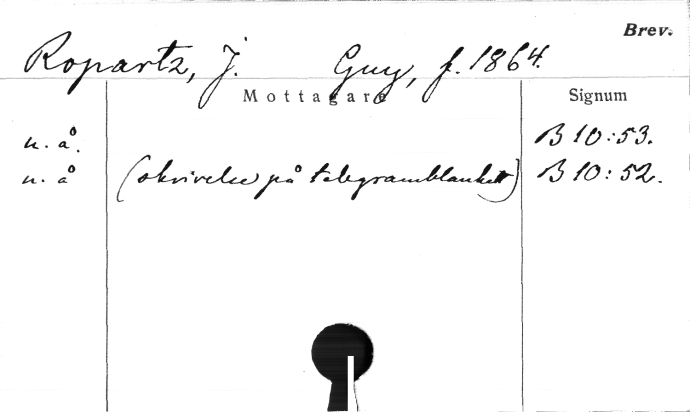 Brev.
Ropartz, J. Guy, f. 1864.
Mottagare Signum
u. å. B 10:53.
u. å (skrivelse på telegramblankett) B 10:52.